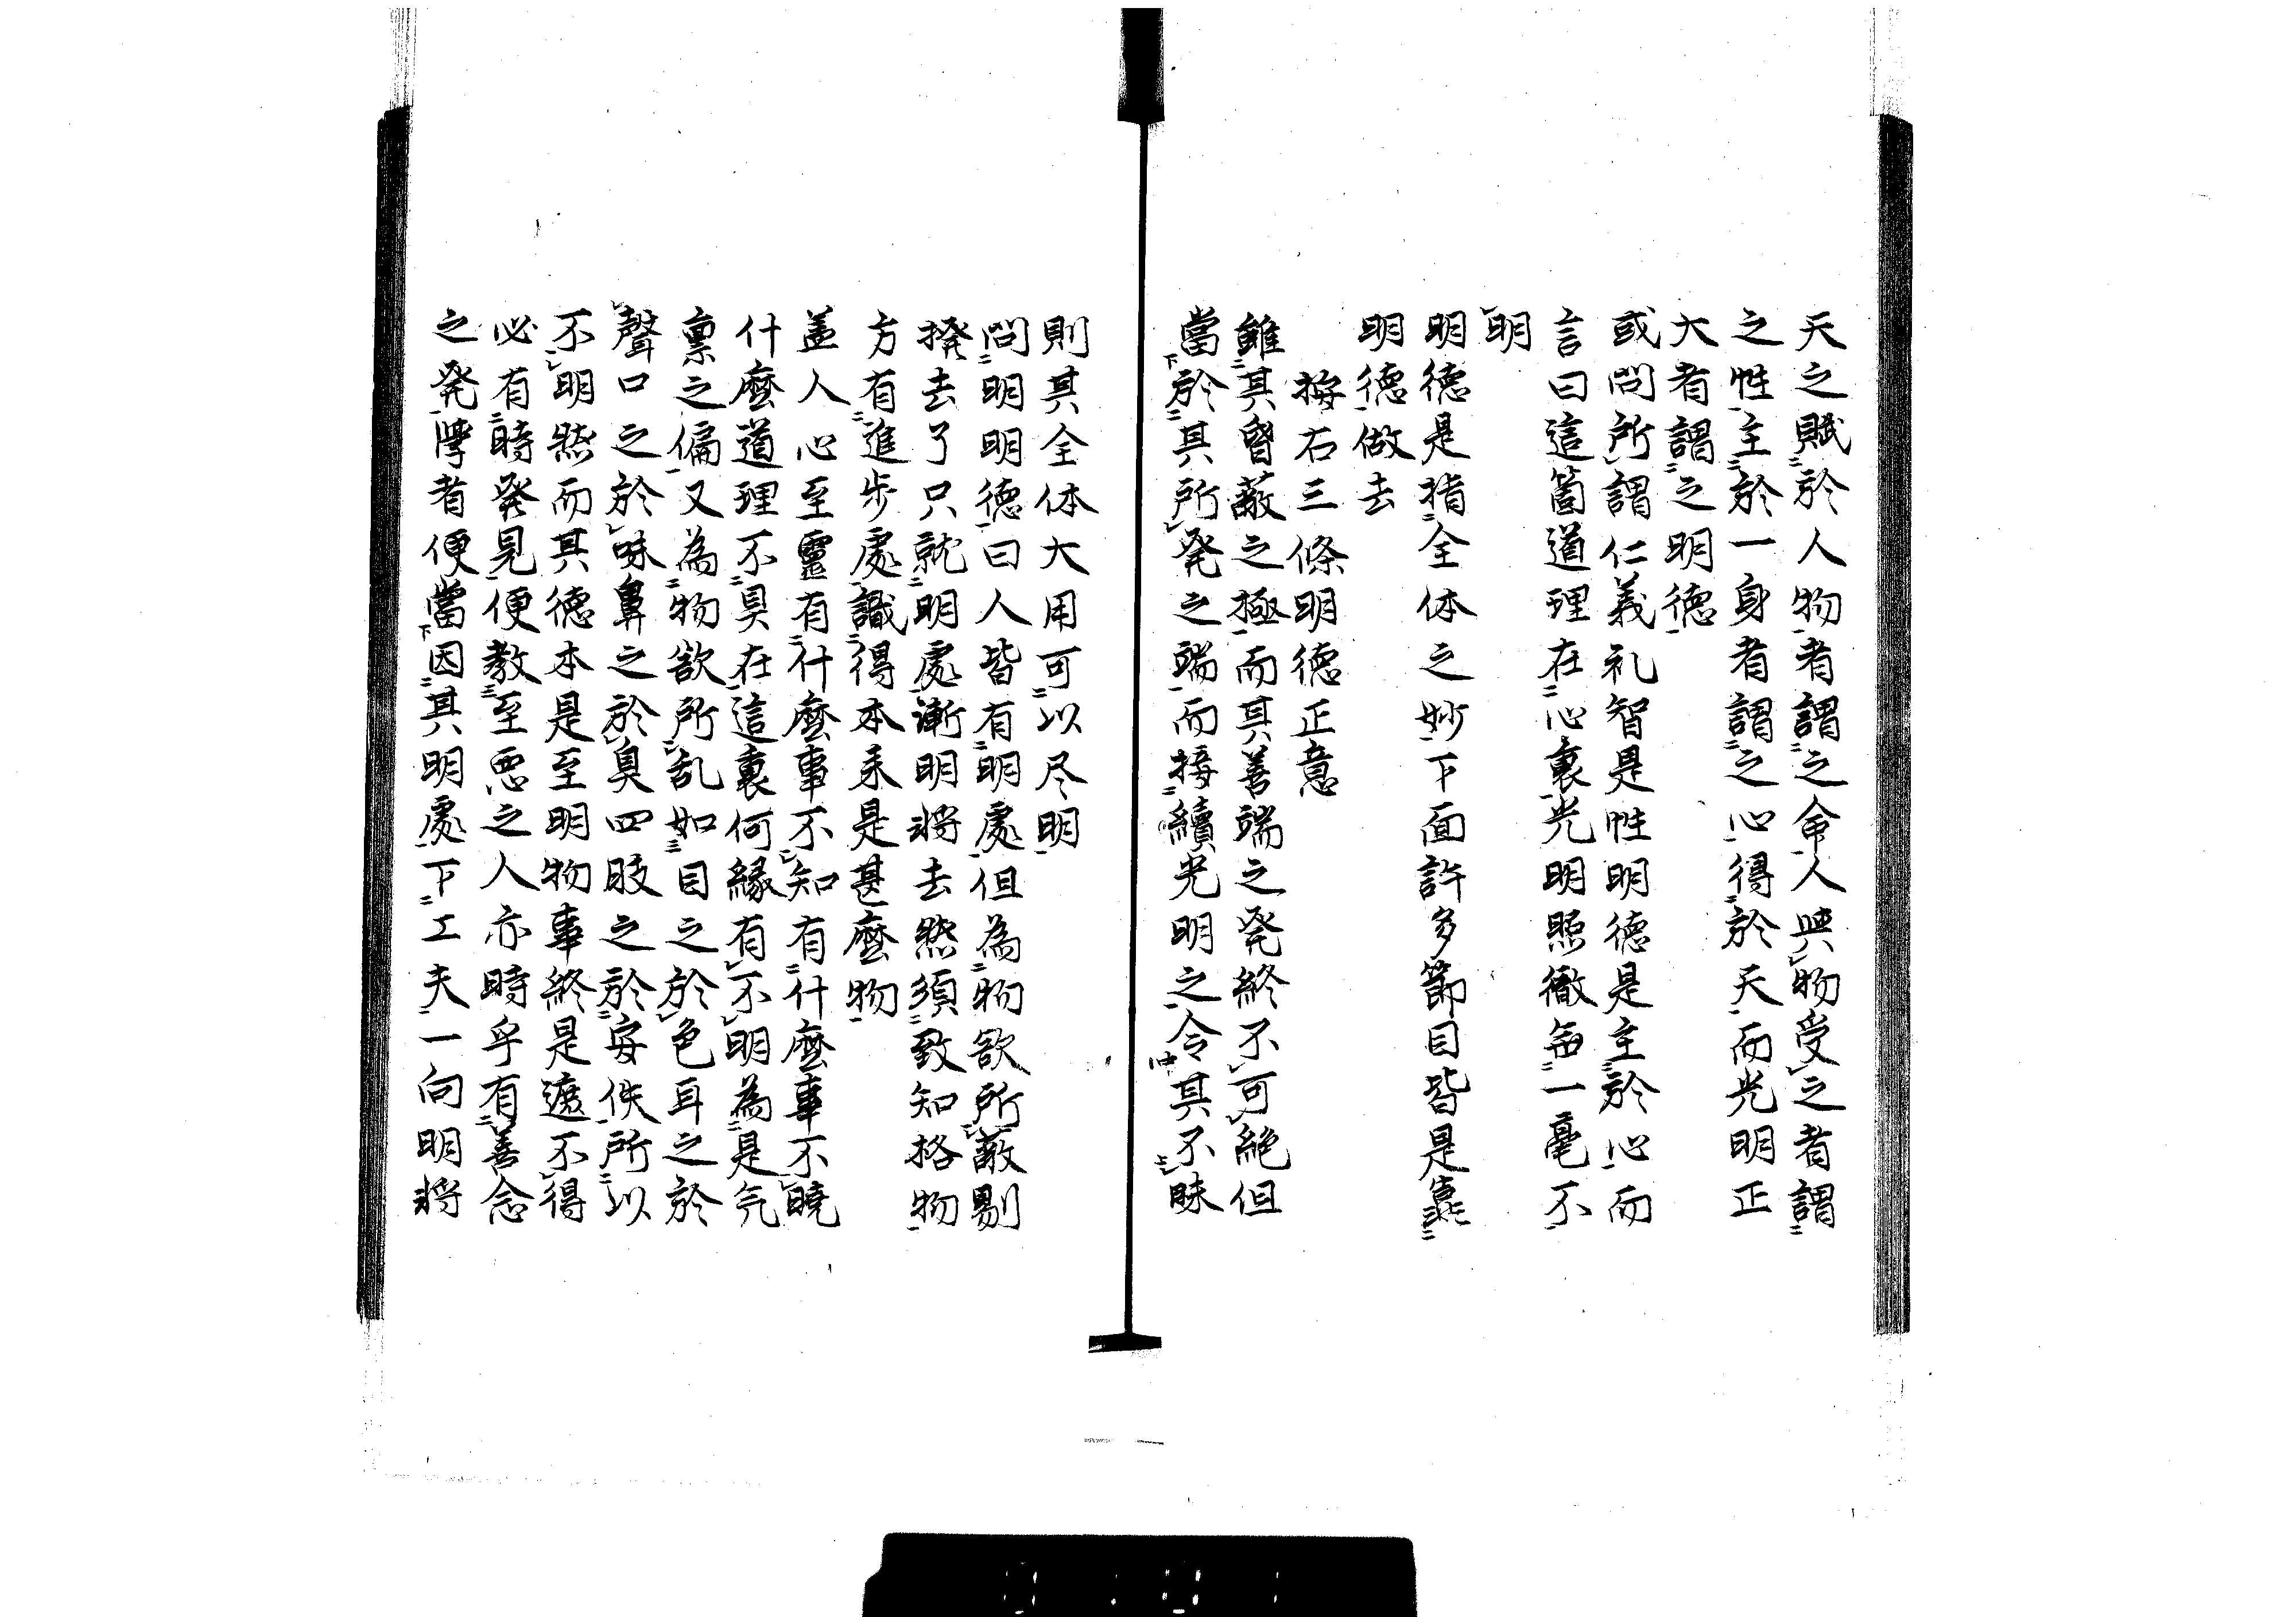 天之賦於人物者謂之命人與物受之者謂
之性主於一身者謂之心得於天而光明正
大者謂之明德
或問所謂仁義礼智是性明德是主於心而
言曰這箇道理在心裏光明照徹無一毫不
明
明德是指全体之妙下面許多節目皆是靠
明德做去
按右三條明德正意
雖其昏蔽之極而其善端之発終不可絶但
當於其所発之端而接續光明之令其不昧
則其全体大用可以尽明
問明明德曰人皆有明處但為物欲所蔽剔
撥去了只就明處漸明將去然須致知格物
方有進步處識得本来是甚麼物
盖人心至靈有什麼事不知有什麼事不曉
什麼道理不具在這裏何緣有不明為是気
稟之偏又為物欲所乱如目之於色耳之於
聲口之於味鼻之於臭四肢之於安佚所以
不明然而其德本是至明物事終是遮不得
必有時発見便教至悪之人亦時乎有善念
之発学者便當因其明處下工夫一向明將